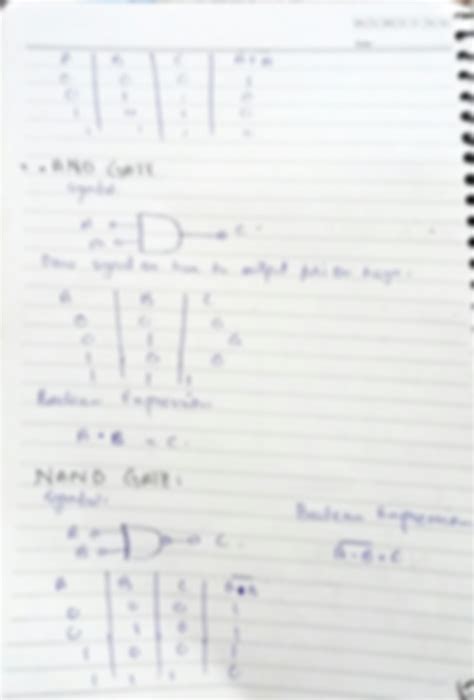 A B C A+B
0 0 0 1
0 1 1 0
1 0 1 0
1 1 1 0
AND GATE
Symbol:
A
B C
A B C
0 0 0
0 1 0
1 0 0
1 1 1
Boolean Expression
A • B = C.
NAND GATE:
Symbol: Boolean Expression
A
B C
A • B = C
A B C A • B
0 0 0 1
0 1 0 1
1 0 0 1
1 1 1 0